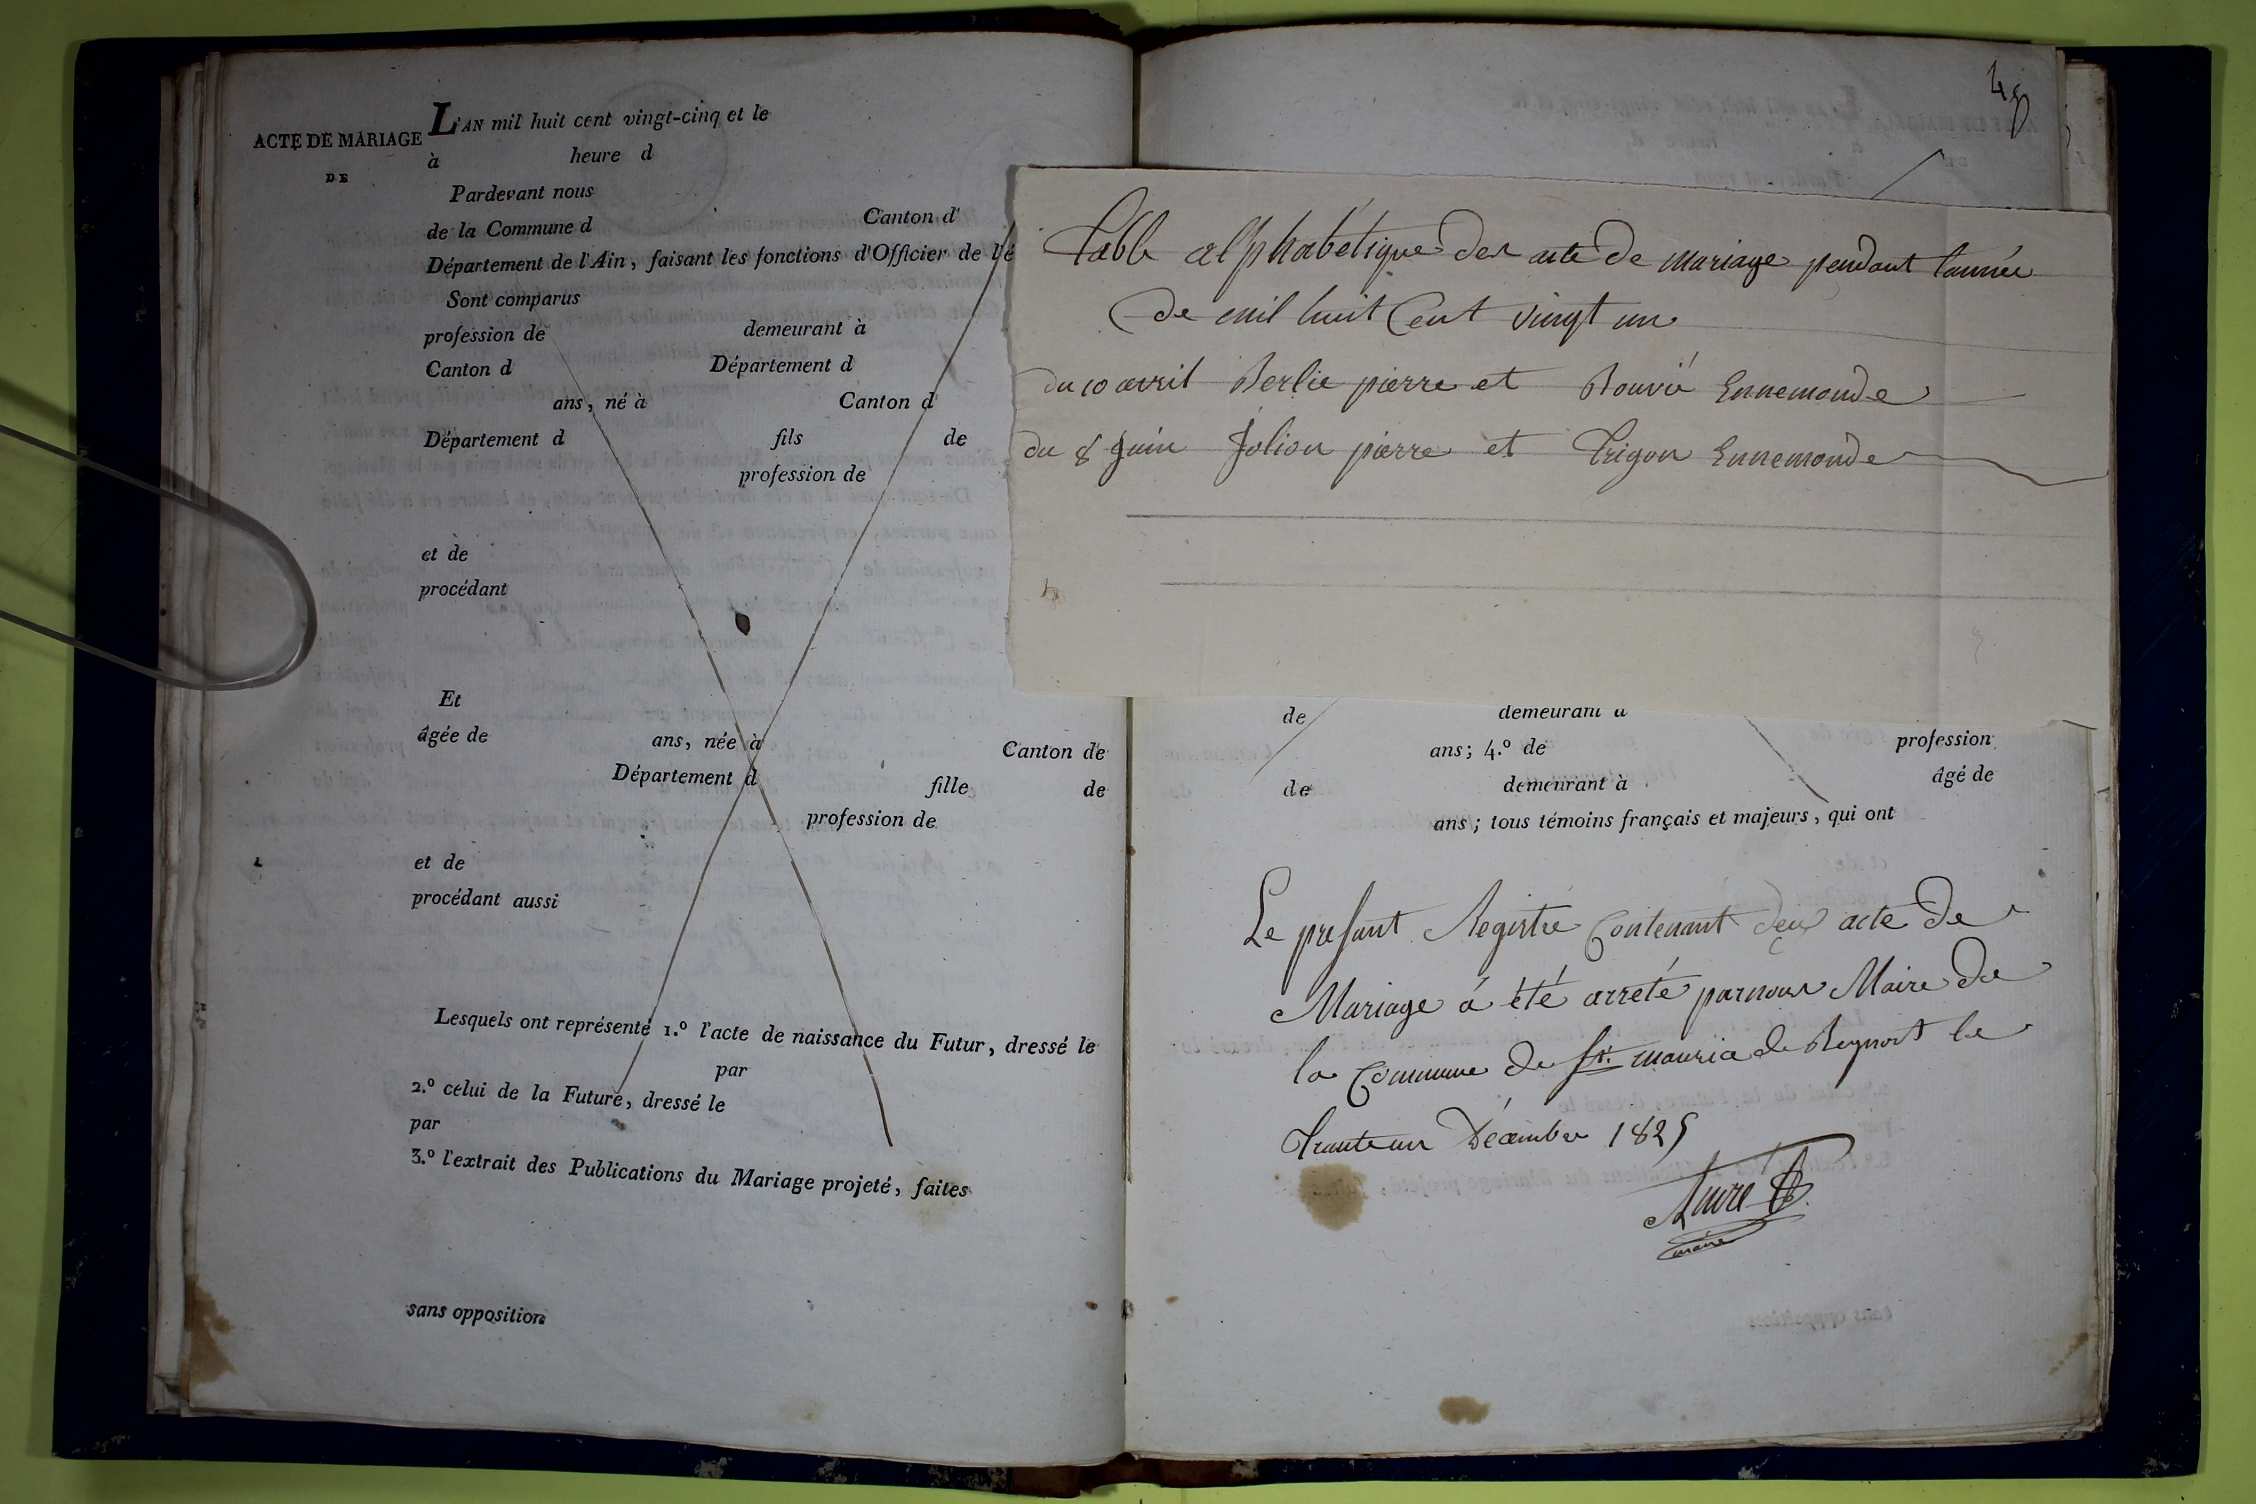 ACTE DE MARIAGE
DE
L'AN mil huit cent vingt-cinq et le
à heure d
Pardevant nous
de la Commune d Canton d'
Département de l'Ain, faisant les fonctions d'Officier de l'é
Sont comparus
profession de demeurant à
Canton d Département d
ans, né à Canton d
Département d fils de
profession de
et de
procédant
Et
âgée de ans, née à Canton de
Département d fille de
profession de
et de
procédant aussi
Lesquels ont représenté 1.º l'acte de naissance du Futur, dressé le
par
2.º celui de la Future, dressé le
par
3.º l'extrait des Publications du Mariage projeté, faites
sans opposition
48
Table alphabétique des acte de mariage pendant l'année
de mil huit Cent vingt un
du 10 avril Berlie pierre et Bouvié Ennemonde
du 8 Juin Jolion pierre et Trigon Ennemonde
de demeurant à
ans; 4.º de profession
de demeurant à âgé de
ans; tous témoins français et majeurs, qui ont
Le presant Registre Contenant deux acte de
Mariage á été arreté par nous Maire de
la Commune de St. maurice de Beynost le
trante un Décembre 1825
maire